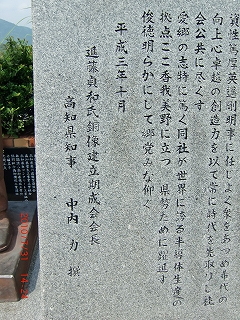 資性篤厚英邁剛明事に任じよく衆をあつめ希代の
向上心卓越の創造力を以て常に時代を先取りし社
会公共に尽くす
愛郷の志特に篤く同社が世界に誇る半導体生産の
拠点ここ香我美野に立つ 県勢ために躍進す
俊徳明らかにして郷党みな仰ぐ
平成三年十月
進藤貞和氏銅像建立期成会会長
高知県知事 中内 力 撰